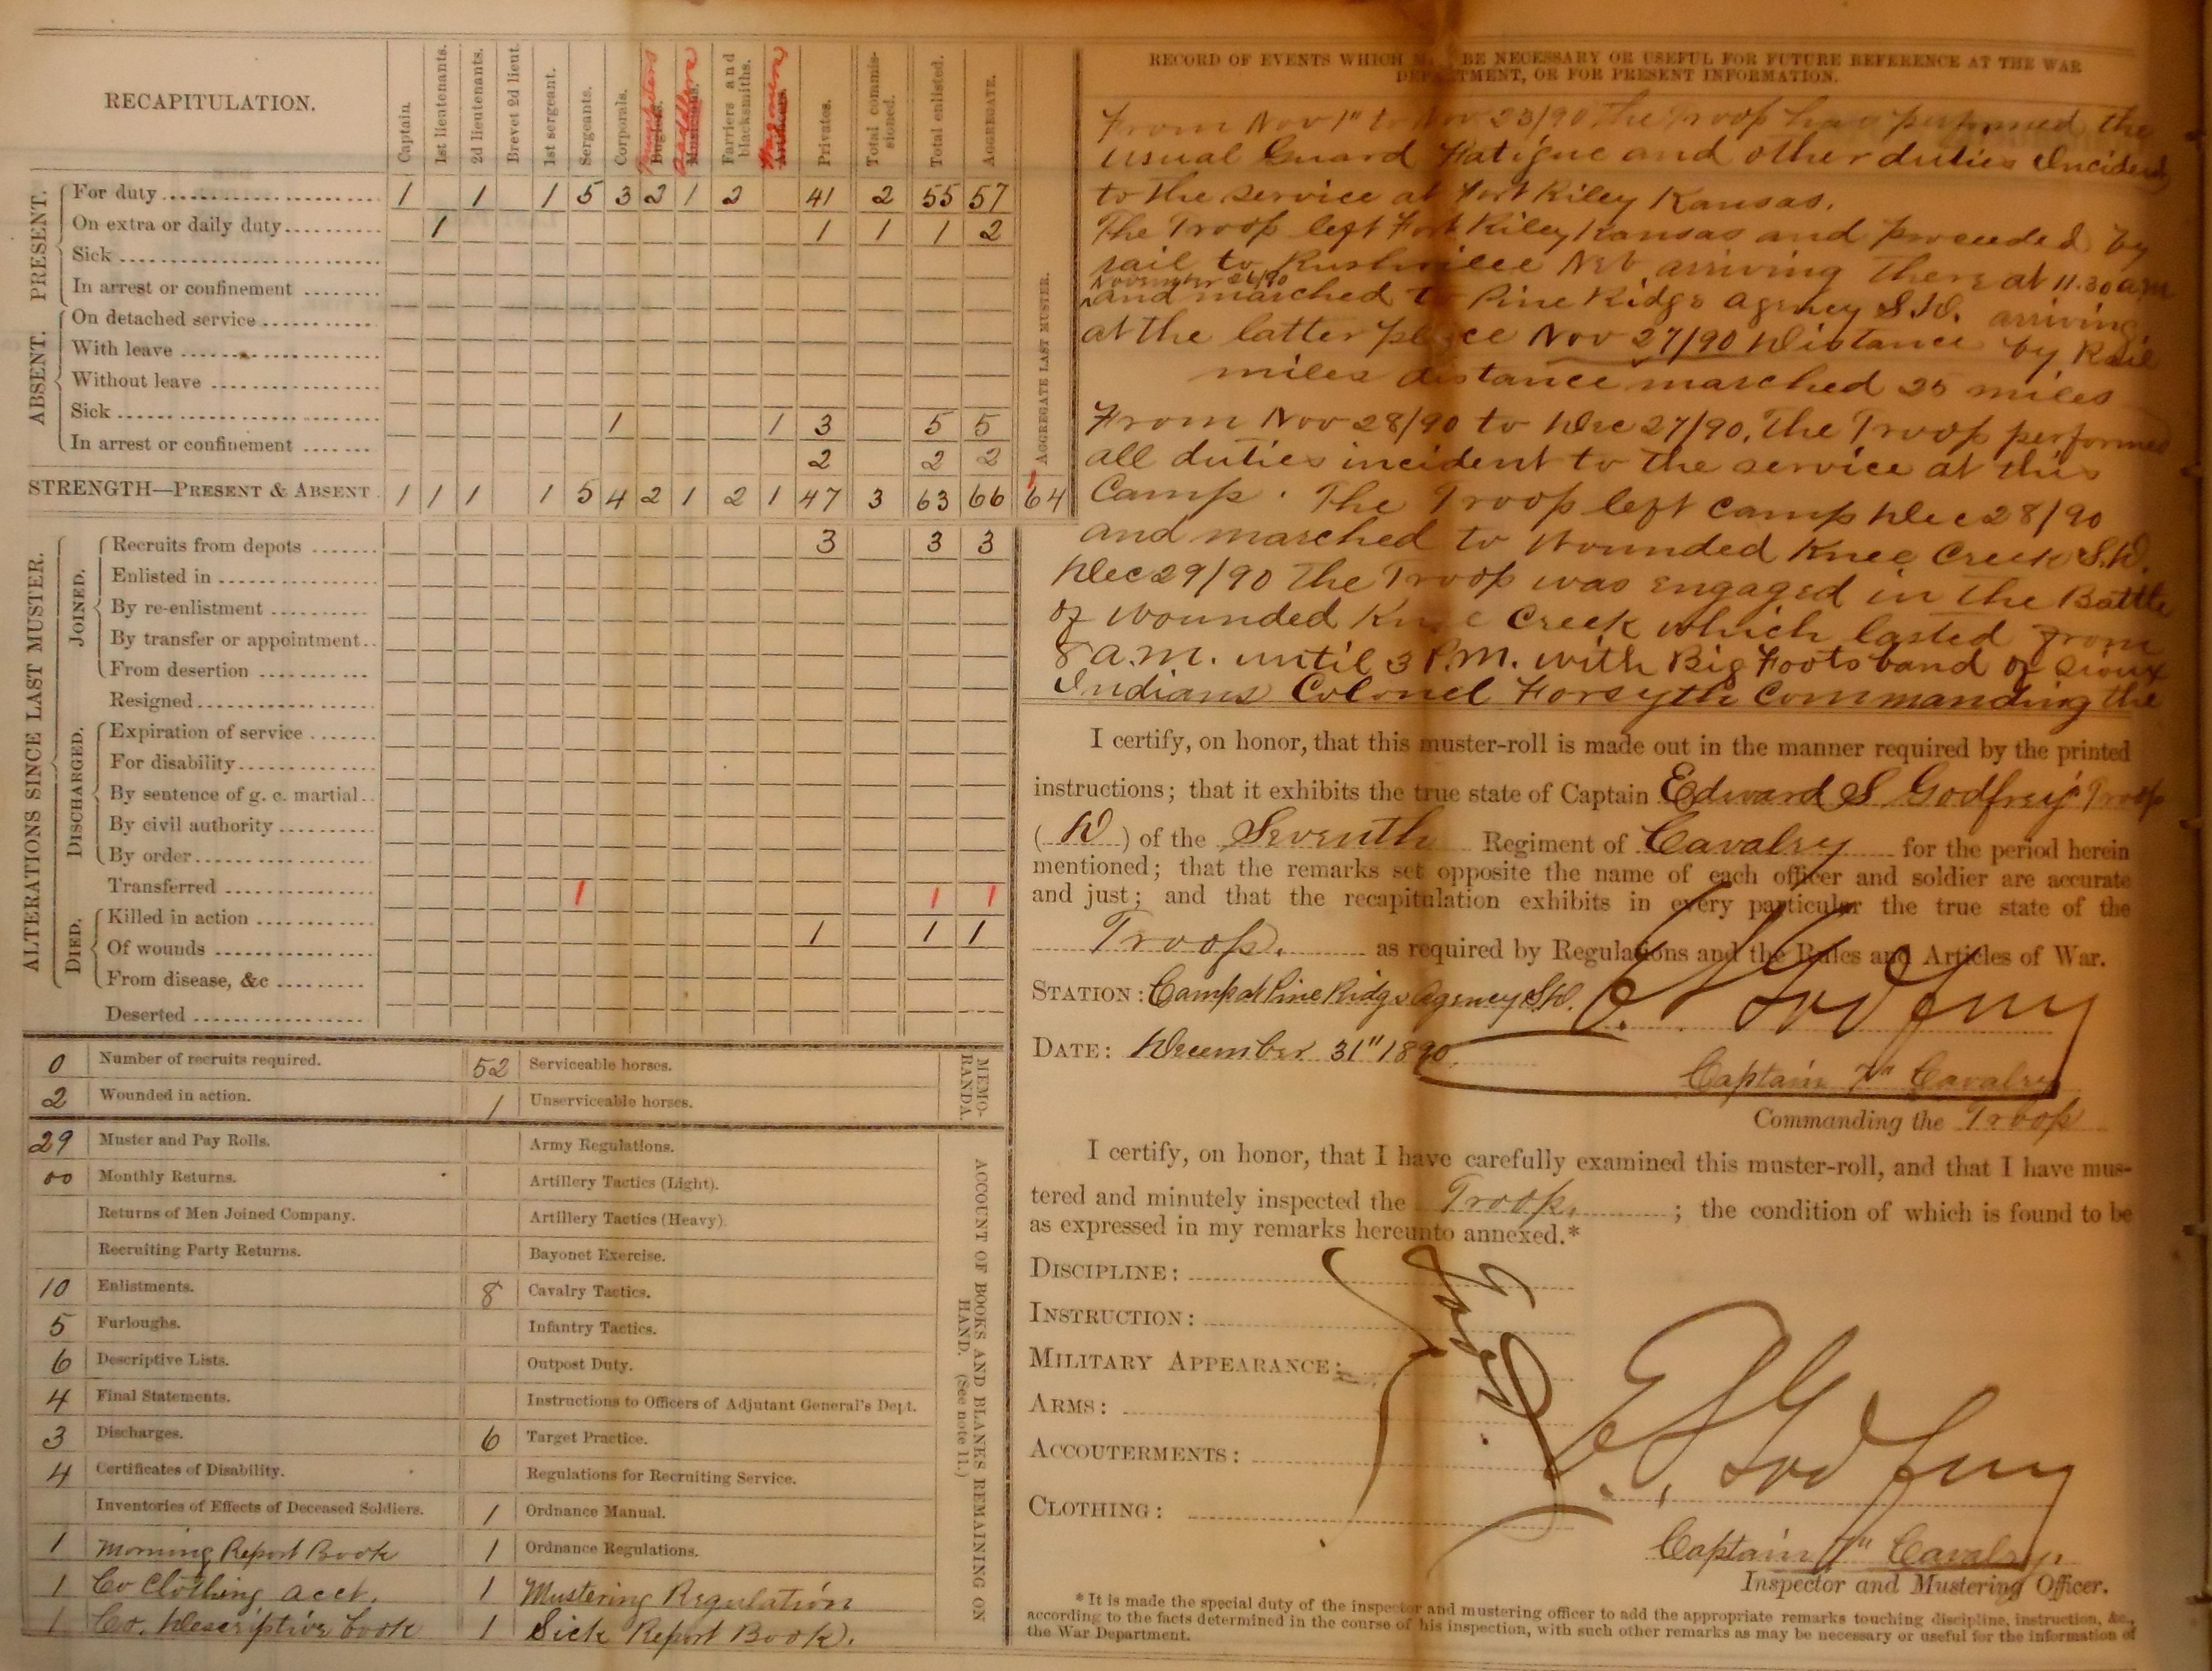 RECAPITULATION.
Captain.
1st lieutenants.
2d lieutenants.
Brevet 2d lieut.
1st sergeant.
Sergeants.
Corporals.
Trumpeters
Saddlers
Farriers and blacksmiths.
Wagoners
Privates.
Total commissioned.
Total enlisted.
AGGREGATE.
AGGREGATE LAST MUSTER.
PRESENT.
For duty 1 1 1 5 3 2 1 2 41 2 55 57
On extra or daily duty 1 1 1 1 2
Sick
In arrest or confinement
ABSENT.
On detached service
With leave
Without leave
Sick 1 1 3 5 5
In arrest or confinement 2 2 2
STRENGTH—PRESENT & ABSENT. 1 1 1 1 5 4 2 1 2 1 47 3 63 66 64
ALTERATIONS SINCE LAST MUSTER.
JOINED.
Recruits from depots 3 3 3
Enlisted in
By re-enlistment
By transfer or appointment
From desertion
Resigned
DISCHARGED.
Expiration of service
For disability
By sentence of g. c. martial
By civil authority
By order
Transferred 1 1 1
DIED.
Killed in action 1 1 1
Of wounds
From disease, &c
Deserted
0 Number of recruits required. 52 Serviceable horses.
2 Wounded in action. 1 Unserviceable horses.
MEMORANDA.
29 Muster and Pay Rolls. Army Regulations.
00 Monthly Returns. Artillery Tactics (Light).
Returns of Men Joined Company. Artillery Tactics (Heavy).
Recruiting Party Returns. Bayonet Exercise.
10 Enlistments. 8 Cavalry Tactics.
5 Furloughs. Infantry Tactics.
6 Descriptive Lists. Outpost Duty.
4 Final Statements. Instructions to Officers of Adjutant General's Dept.
3 Discharges. 6 Target Practice.
4 Certificates of Disability. Regulations for Recruiting Service.
Inventories of Effects of Deceased Soldiers. 1 Ordnance Manual.
1 Morning Report Book 1 Ordnance Regulations.
1 Co Clothing acct. 1 Mustering Regulation
1 Co. Descriptive book 1 Sick Report Book.
ACCOUNT OF BOOKS AND BLANKS REMAINING ON HAND. (See note 11.)
RECORD OF EVENTS WHICH BE NECESSARY OR USEFUL FOR FUTURE REFERENCE AT THE WAR
DEPARTMENT, OR FOR PRESENT INFORMATION.
From Nov 1" to Nov 23/90 the Troop has performed the
usual Guard Fatigue and other duties Incident
to the service at Fort Riley Kansas.
The Troop left Fort Riley Kansas and proceeded by
rail to Rushville Neb arriving there at 11.30 a.m
November 26/90
and marched to Pine Ridge agency S.D. arriving
at the latter place Nov 27/90 Distance by Rail
miles distance marched 25 miles
From Nov 28/90 to Dec 27/90, the Troop performed
all duties incident to the service at this
Camp. The Troop left camp Dec 28/90
and marched to Wounded Knee Creek S.D.
Dec 29/90 The Troop was engaged in the Battle
of Wounded Knee Creek which lasted from
8 a.m. until 3 P.M. with Big Foots band of Sioux
Indians Colonel Forsyth Commanding the
I certify, on honor, that this muster-roll is made out in the manner required by the printed
instructions; that it exhibits the true state of Captain Edward S Godfrey's Troop
( D ) of the Seventh Regiment of Cavalry for the period herein
mentioned; that the remarks set opposite the name of each officer and soldier are accurate
and just; and that the recapitulation exhibits in every particular the true state of the
Troop. as required by Regulations and the Rules and Articles of War.
STATION: Camp at Pine Ridge Agency S.D.
E. S. Godfrey
DATE: December 31" 1890.
Captain 7" Cavalry
Commanding the Troop
I certify, on honor, that I have carefully examined this muster-roll, and that I have mus-
tered and minutely inspected the Troop. ; the condition of which is found to be
as expressed in my remarks hereunto annexed.*
DISCIPLINE:
INSTRUCTION:
MILITARY APPEARANCE:
ARMS:
ACCOUTERMENTS:
CLOTHING:
Good
E. S. Godfrey
Captain 7" Cavalry
Inspector and Mustering Officer.
* It is made the special duty of the inspector and mustering officer to add the appropriate remarks touching discipline, instruction, &c.,
according to the facts determined in the course of his inspection, with such other remarks as may be necessary or useful for the information of
the War Department.